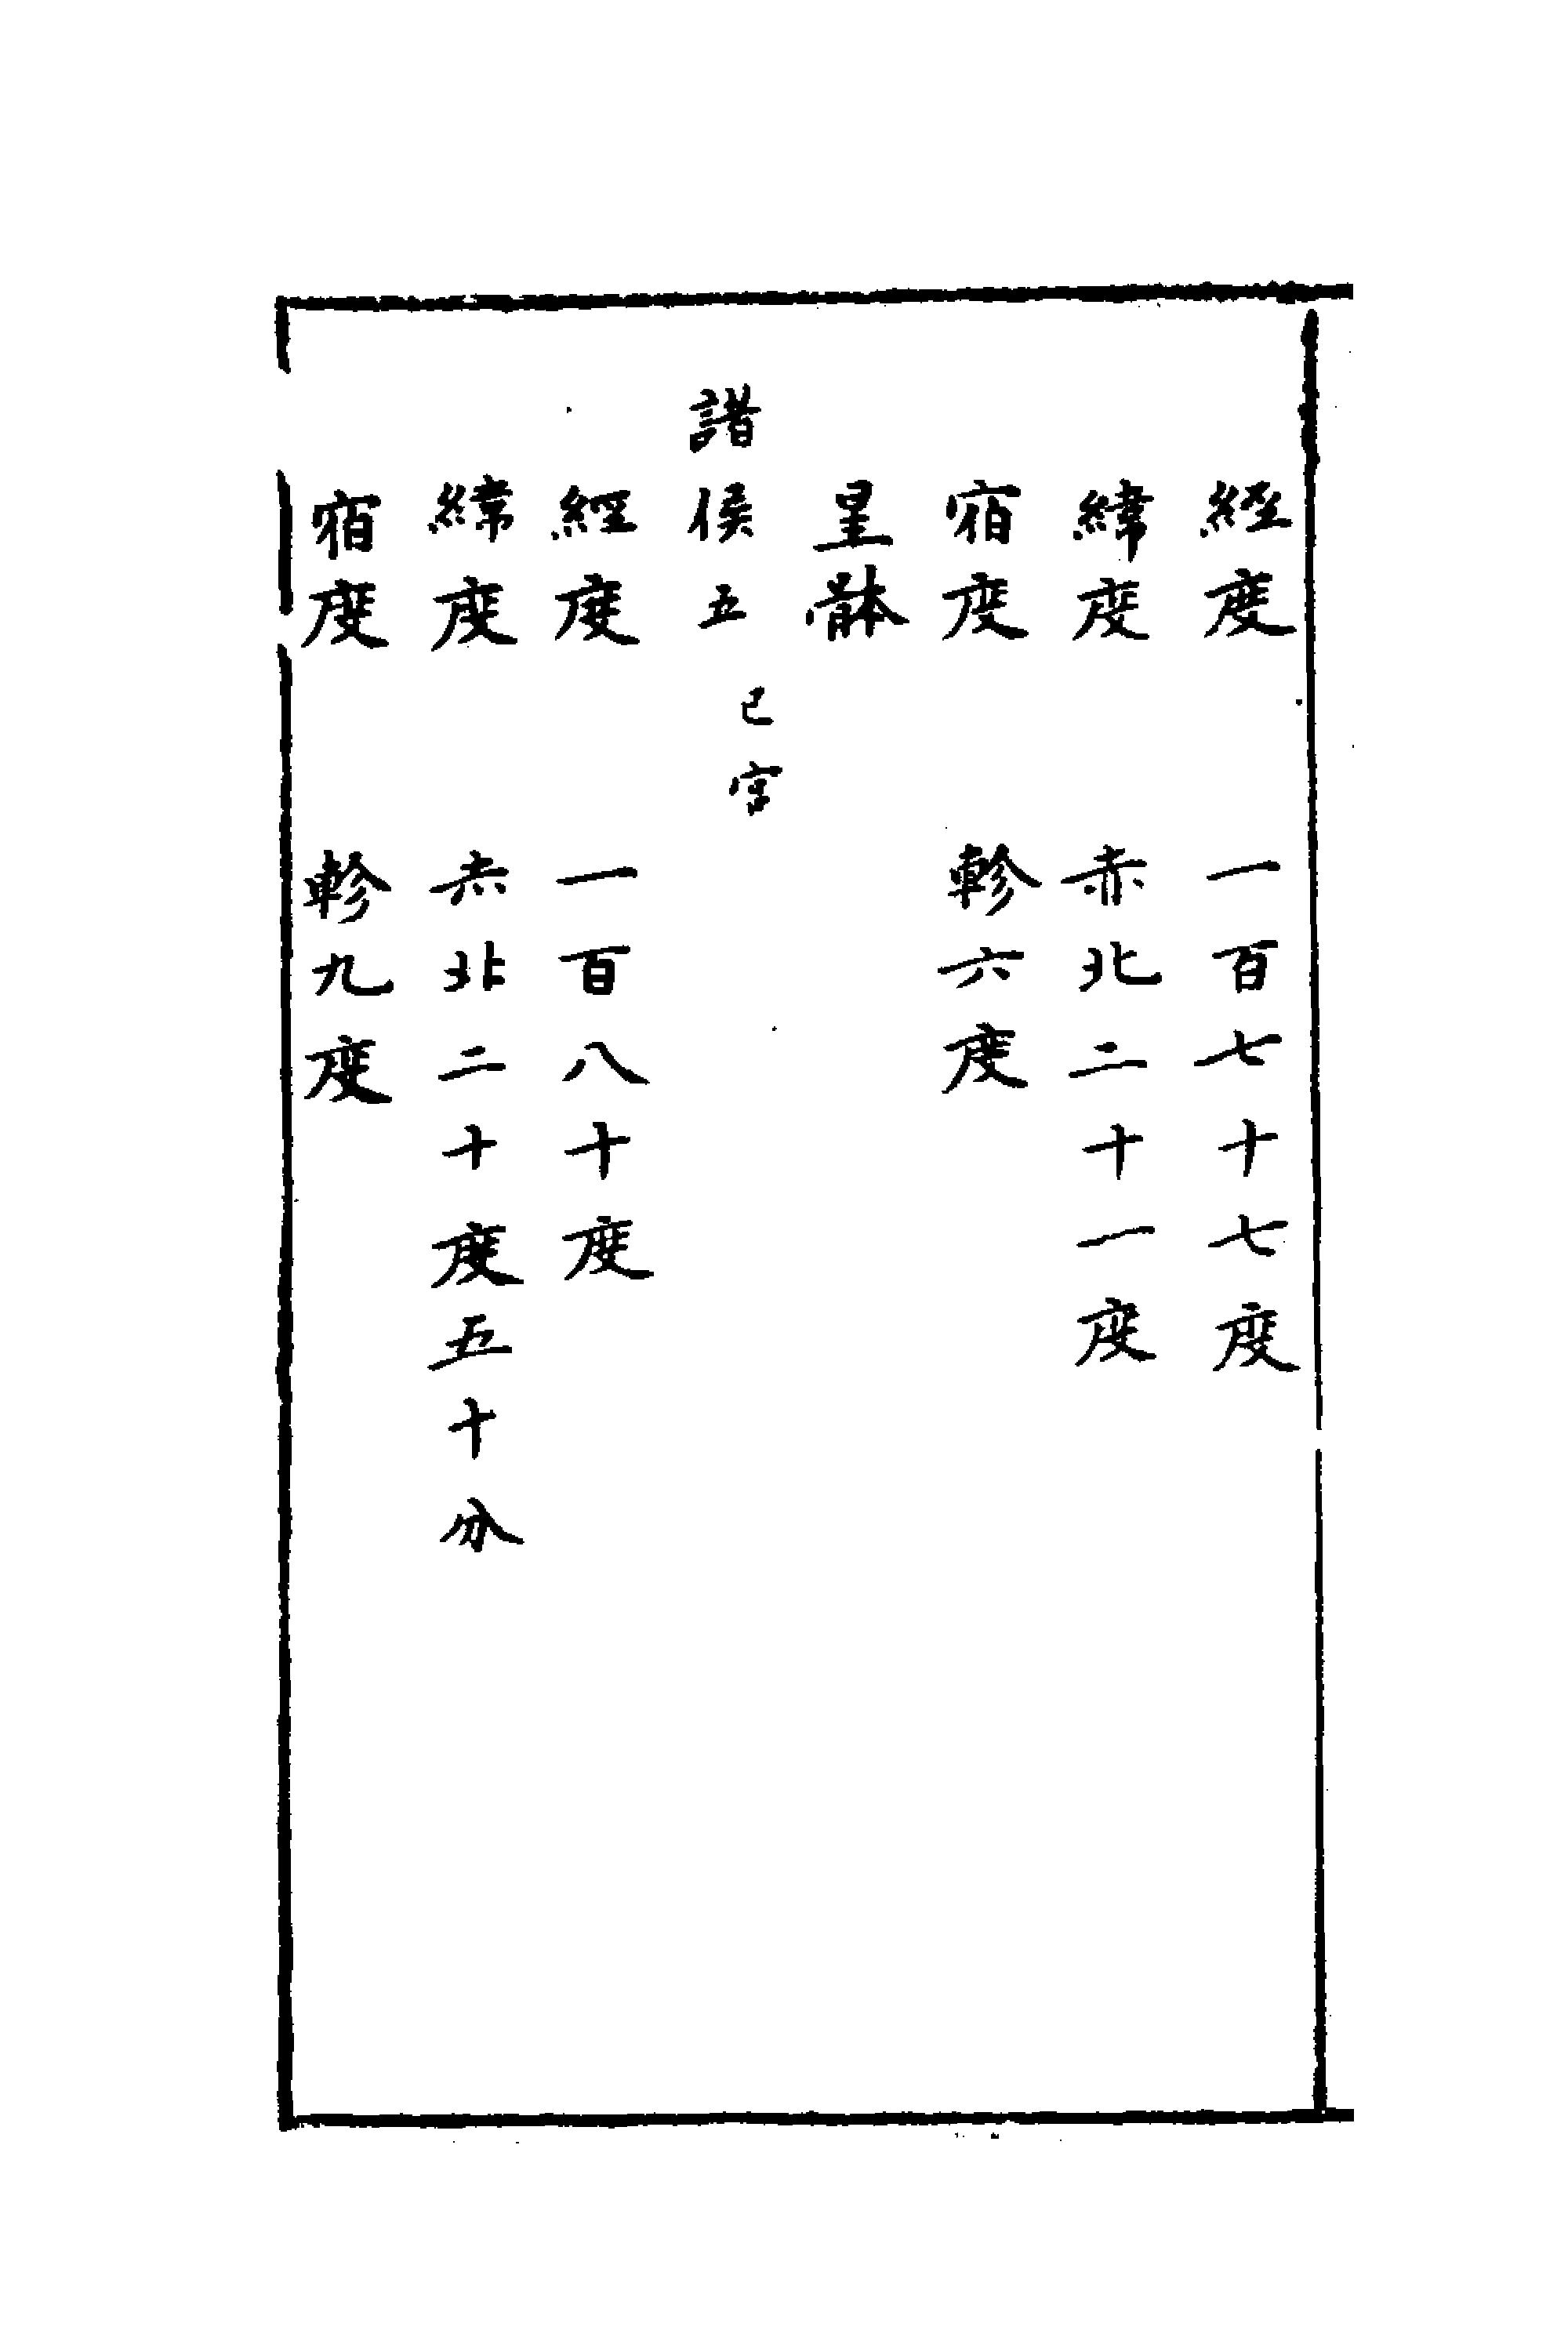 經度 一百七十七度
緯度 赤北二十一度
宿度 軫六度
星體
諸侯五 巳宮
經度 一百八十度
緯度 赤北二十度五十分
宿度 軫九度